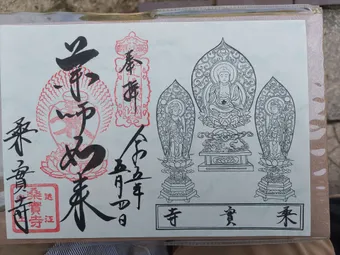 奉拝
令和五年
五月四日
薬師如来
桒實寺
近江
桑實寺
桒實寺